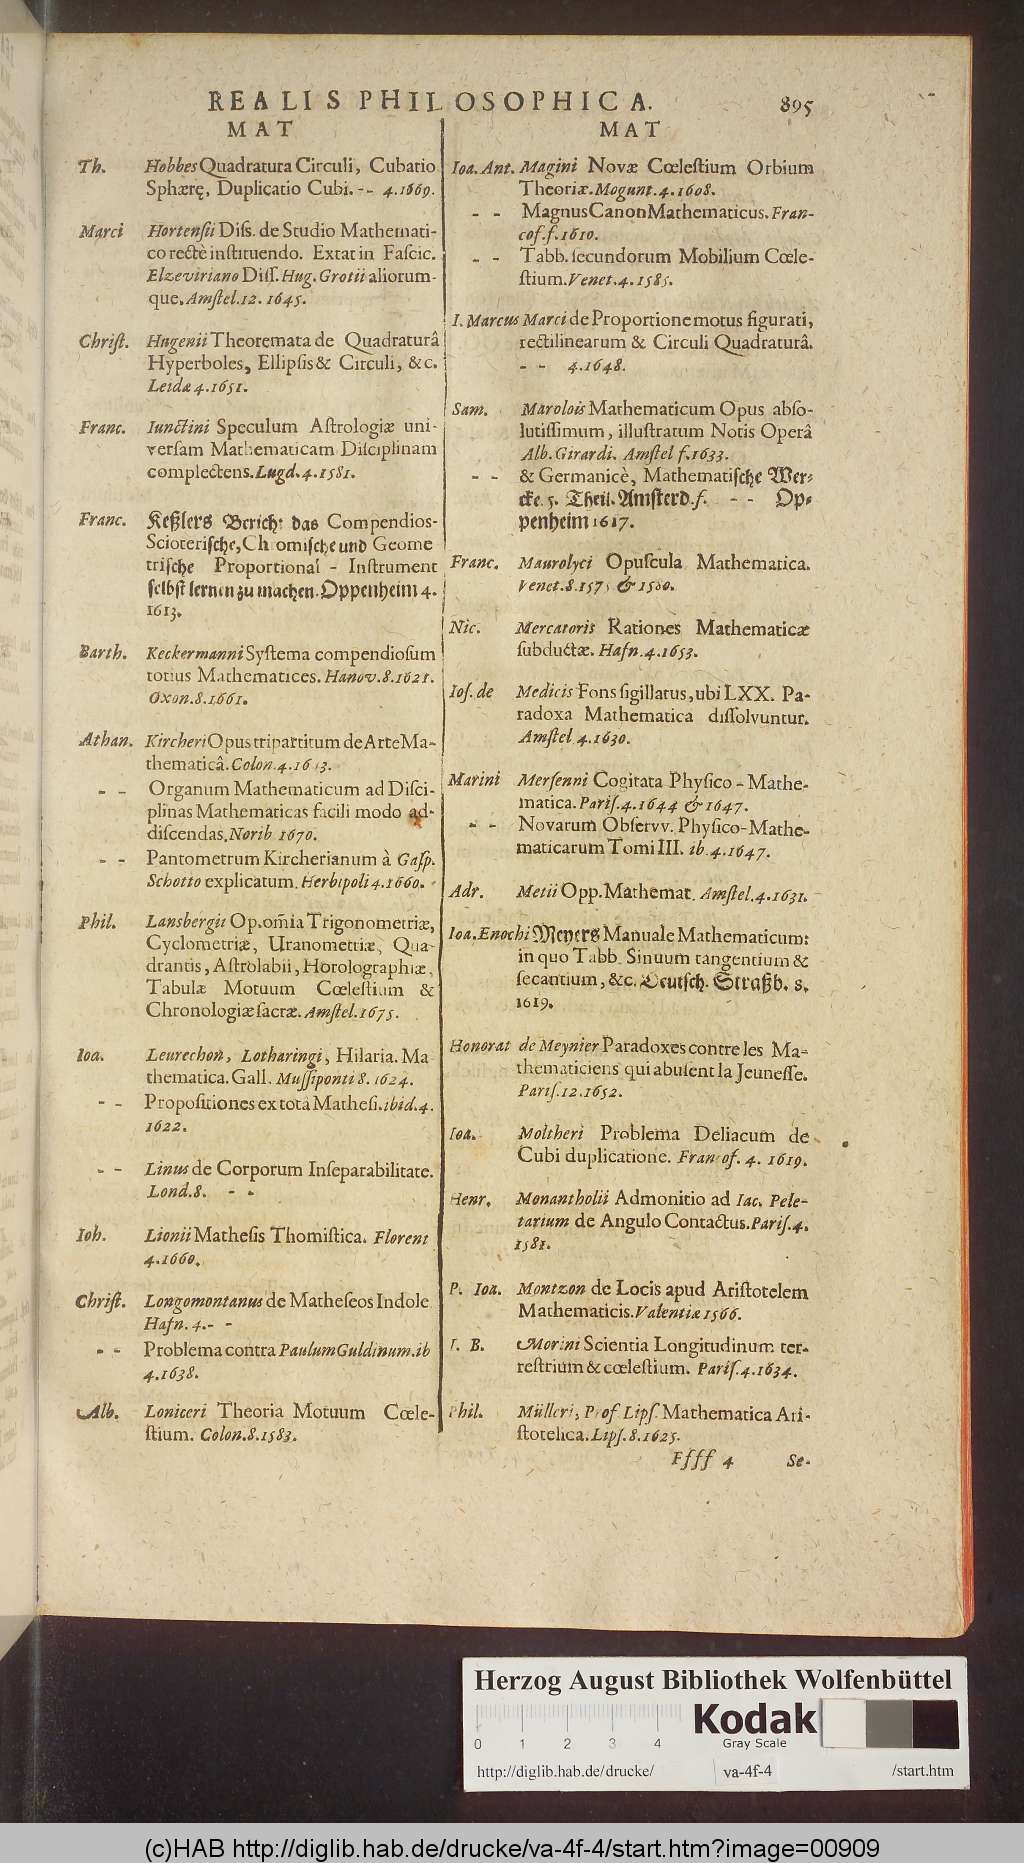 REALIS PHILOSOPHICA. 895
MAT
Th. Hobbes Quadratura Circuli, Cubatio
Sphærę, Duplicatio Cubi. -- 4. 1669.
Marci Hortensii Diss. de Studio Mathemati-
co rectè instituendo. Extat in Fascic.
Elzeviriano Diss. Hug. Grotii aliorum-
que. Amstel. 12. 1645.
Christ. Hugenii Theoremata de Quadraturâ
Hyperboles, Ellipsis & Circuli, &c.
Leidæ 4. 1651.
Franc. Iunctini Speculum Astrologiæ uni-
versam Mathematicam Disciplinam
complectens. Lugd. 4. 1581.
Franc. Keßlers Bericht das Compendios-
Scioterische, Chromische und Geome
trische Proportional - Instrument
selbst lernen zu machen. Oppenheim 4.
1613.
Barth. Keckermanni Systema compendiosum
totius Mathematices. Hanov. 8. 1621.
Oxon. 8. 1661.
Athan. Kircheri Opus tripartitum de Arte Ma-
thematicâ. Colon. 4.
-- Organum Mathematicum ad Disci-
plinas Mathematicas facili modo ad-
discendas. Norib 1670.
-- Pantometrum Kircherianum à Gasp.
Schotto explicatum. Herbipoli 4. 1660.
Phil. Lansbergii Op. om̃ia Trigonometriæ,
Cyclometriæ, Uranometriæ, Qua-
drantis, Astrolabii, Horolographiæ,
Tabulæ Motuum Cœlestium &
Chronologiæ sacræ. Amstel. 1675.
Ioa. Leurechon, Lotharingi, Hilaria. Ma
thematica. Gall. Mussiponti 8. 1624.
-- Propositiones ex totâ Mathesi. ibid. 4.
1622.
-- Linus de Corporum Inseparabilitate.
Lond. 8. --
Ioh. Lionii Mathesis Thomistica. Florent
4. 1660.
Christ. Longomontanus de Matheseos Indole
Hafn. 4. --
-- Problema contra Paulum Guldinum. ib
4. 1638.
Alb. Loniceri Theoria Motuum Cœle-
stium. Colon. 8. 1583.
MAT
Ioa. Ant. Magini Novæ Cœlestium Orbium
Theoriæ. Mogunt. 4. 1608.
-- Magnus Canon Mathematicus. Fran-
cof. f. 1610.
-- Tabb. secundorum Mobilium Cœle-
stium. Venet. 4. 1585.
I. Marcus Marci de Proportione motus figurati,
rectilinearum & Circuli Quadraturâ.
-- 4. 1648.
Sam. Marolois Mathematicum Opus abso-
lutissimum, illustratum Notis Operâ
Alb. Girardi. Amstel f. 1633.
-- & Germanicè, Mathematische Wer-
cke. 5. Theil. Amsterd. f. -- Op-
penheim 1617.
Franc. Maurolyci Opuscula Mathematica.
Venet. 8. &
Nic. Mercatoris Rationes Mathematicæ
subductæ. Hafn. 4. 1653.
Ios. de Medicis Fons sigillatus, ubi LXX. Pa-
radoxa Mathematica dissolvuntur.
Amstel 4. 1630.
Marini Mersenni Cogitata Physico - Mathe-
matica. Paris. 4. 1644 & 1647.
-- Novarum Observv. Physico-Mathe-
maticarum Tomi III. ib. 4. 1647.
Adr. Metii Opp. Mathemat. Amstel. 4. 1631.
Ioa. Enochi Meyers Manuale Mathematicum:
in quo Tabb. Sinuum tangentium &
secantium, &c. Deutsch. Straßb. 8.
1619.
Honorat de Meynier Paradoxes contre les Ma-
thematiciens qui abusent la Jeunesse.
Paris. 12. 1652.
Ioa. Moltheri Problema Deliacum de
Cubi duplicatione. Francof. 4. 1619.
Henr. Monantholii Admonitio ad Iac. Pele-
tarium de Angulo Contactus. Paris. 4.
1581.
P. Ioa. Montzon de Locis apud Aristotelem
Mathematicis. Valentiæ 1566.
I. B. Morini Scientia Longitudinum ter-
restrium & cœlestium. Paris. 4. 1634.
Phil. Mülleri, Prof Lips. Mathematica Ari-
stotelica. Lips. 8. 1625.
Ffff 4 Se-
Herzog August Bibliothek Wolfenbüttel
0 1 2 3 4
Kodak
Gray Scale
http://diglib.hab.de/drucke/ va-4f-4 /start.htm
(c)HAB http://diglib.hab.de/drucke/va-4f-4/start.htm?image=00909